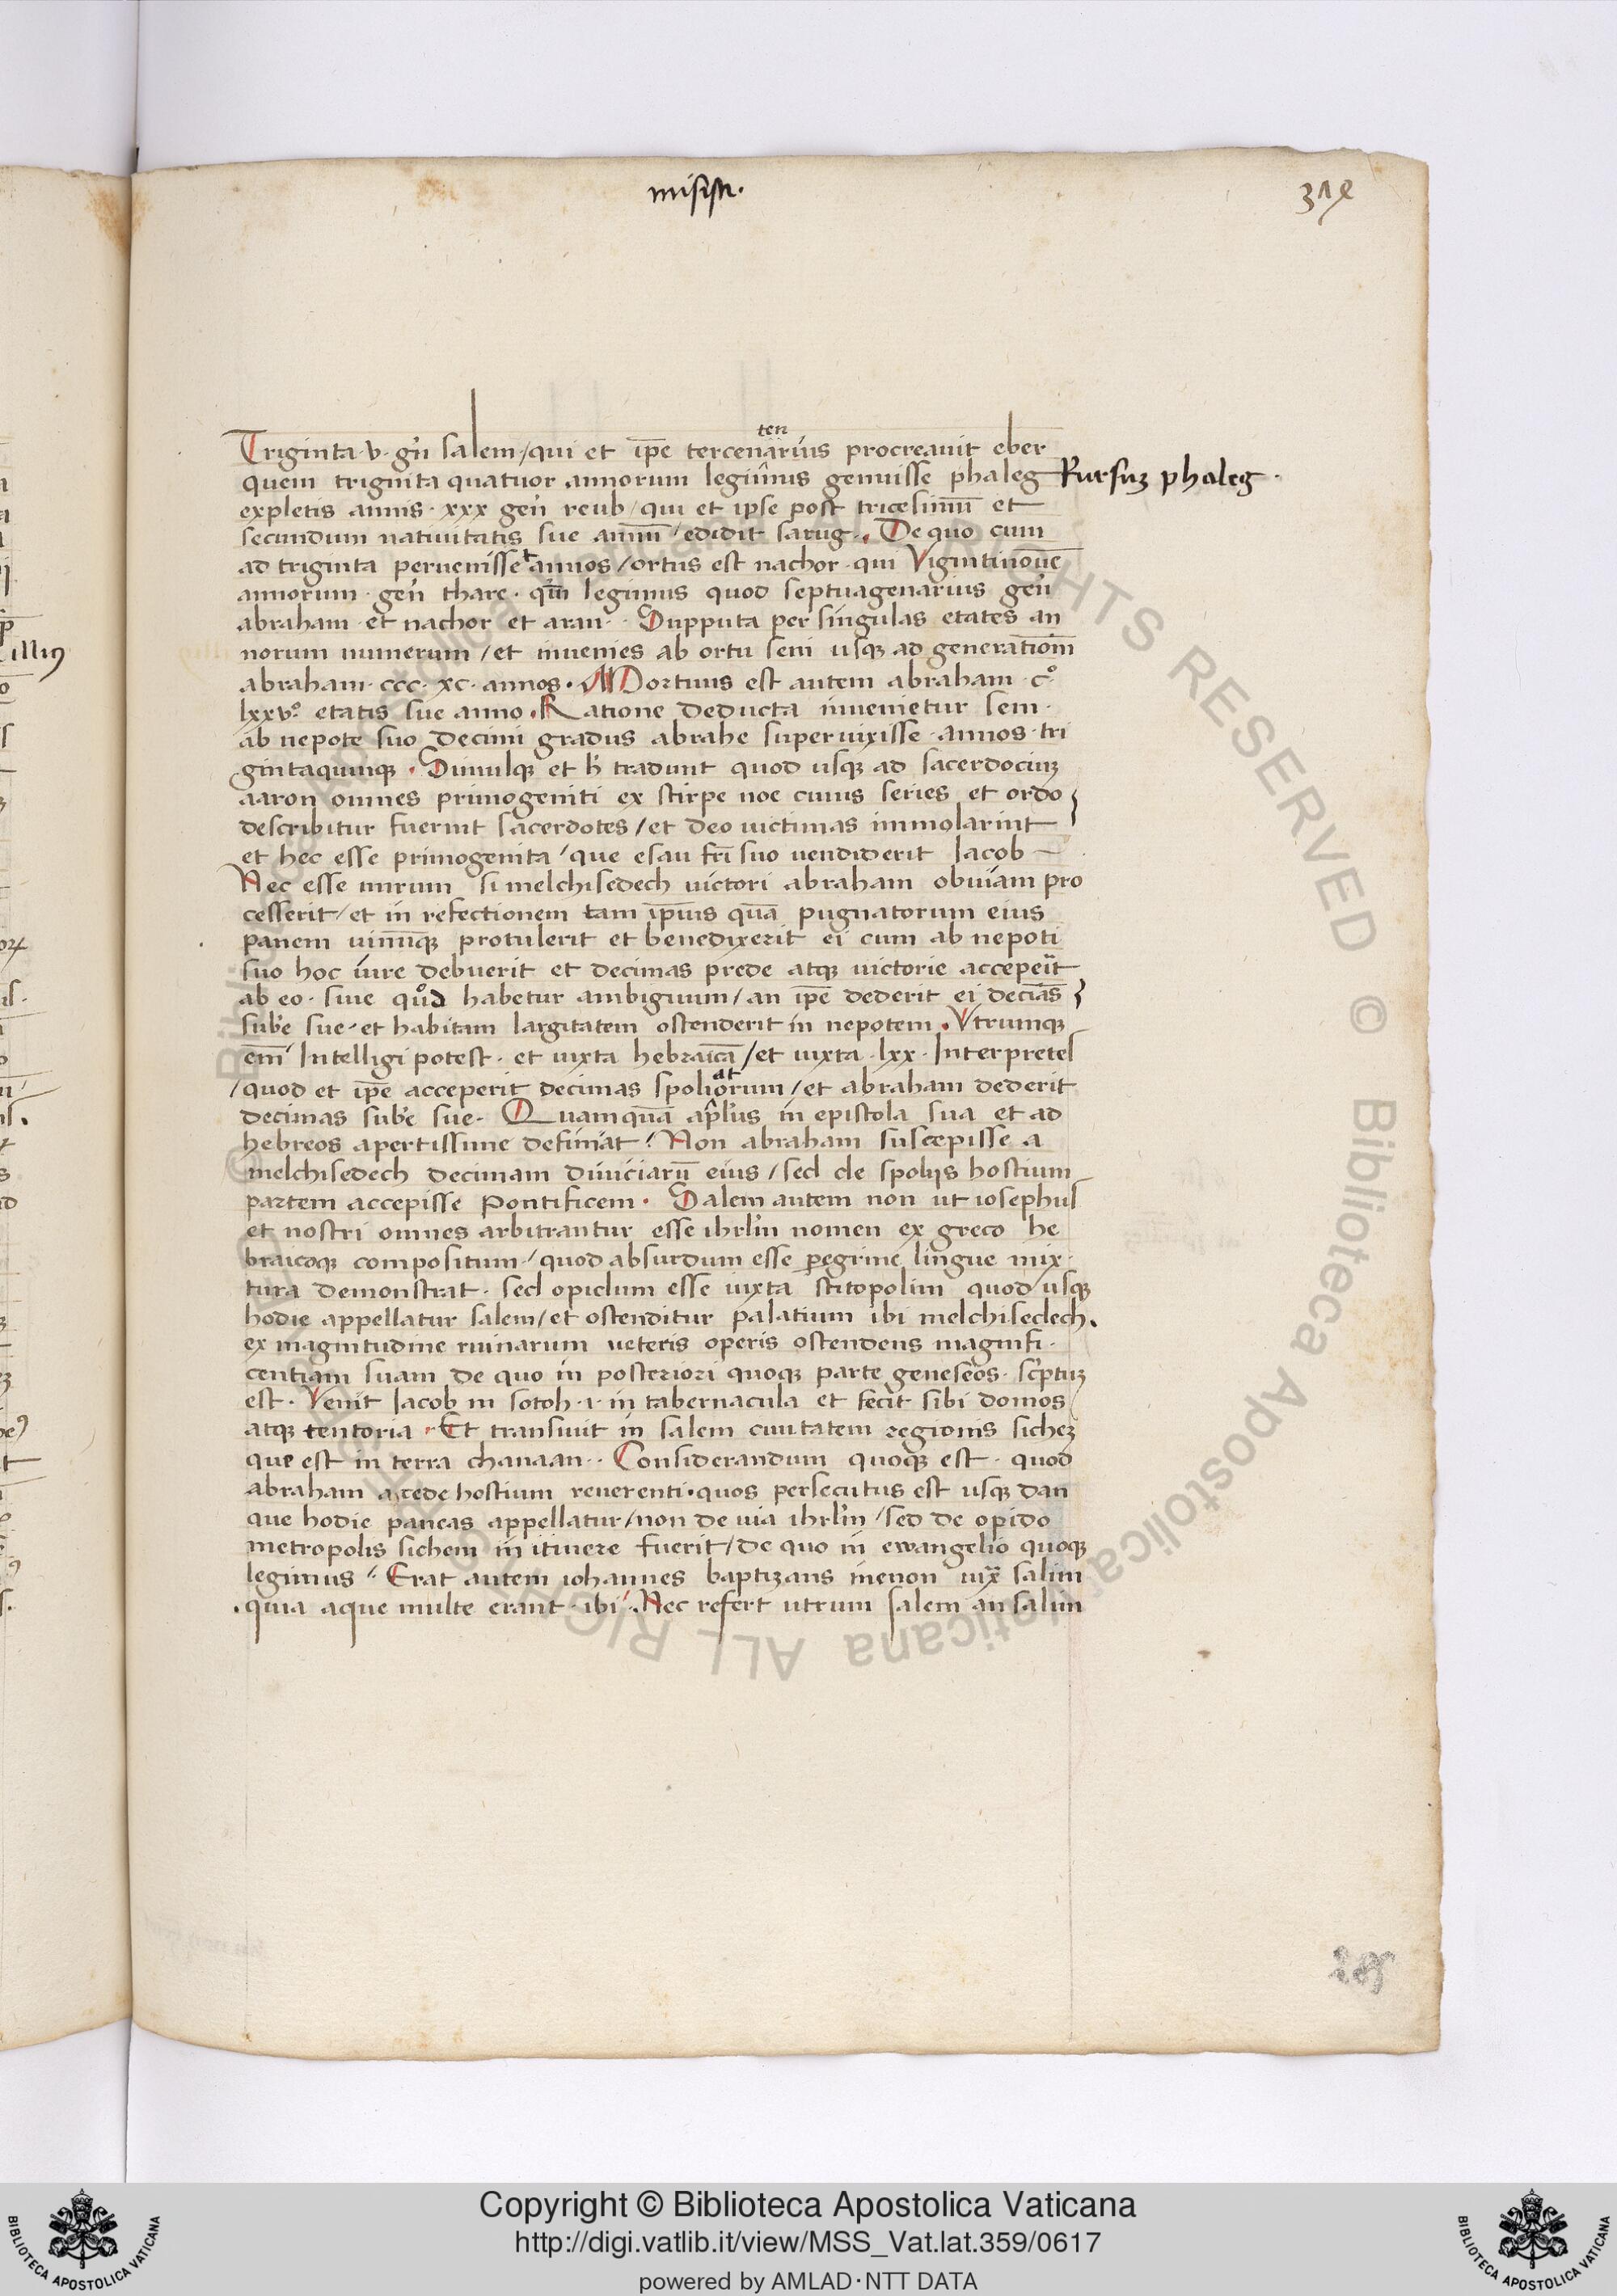 misisti.
318
ten
Triginta · v · gn̄ salem / qui et ip̄e tercenarius procreauit eber
quem triginta quatuor annorum legimus genuisse phaleg Rursuʒ phaleg ·
expletis annis · xxx gen̄ reub / qui et ipse post tricesimū et
secundum natiuitatis sue annū / edidit sarug . De quo cum
ad triginta peruenisset annos / ortus est nachor · qui Vigintinouē
annorum · gen̄ thare · quē legimus quod septuagenarius gen̄
abraham · et nachor et aran · Supputa per singulas etates an
norum numerum / et inuenies ab ortu sem usqꝫ ad generationē
abraham · ccc · xc · annos · Mortuus est autem abraham · cº
lxxvº · etatis sue anno . Ratione deducta inuenietur sem ·
ab nepote suo decimi gradus abrahe superuixisse · annos · tri
gintaquinqꝫ · Simulqꝫ et h̄ tradunt quod usqꝫ ad sacerdociuʒ
aaron omnes primogeniti ex stirpe noe cuius series et ordo
describitur fuerint sacerdotes / et deo uictimas immolarint
et hec esse primogenita / que esau fr̄i suo uendiderit Jacob
Nec esse mirum si melchisedech uictori abraham obuiam pro
cesserit / et in refectionem tam ip̄ius quā pugnatorum eius
panem uinūqꝫ protulerit et benedixerit ei cum ab nepoti
suo hoc iure debuerit et decimas prede atqꝫ uictorie acceperit
ab eo · siue quod habetur ambiguum / an ip̄e dederit ei decimas
sub̄e sue · et habitam largitatem ostenderit in nepotem . Vtrumqꝫ
em̄ Intelligi potest · et iuxta hebraicā / et iuxta · lxx · Interpretes
at
/ quod et ip̄e acceperit decimas spoliorum / et abraham dederit
decimas sub̄e sue · Quamquā apl̄us in epistola sua et ad
hebreos apertissime definiat / Non abraham suscepisse a
melchisedech decimam diuiciarū eius / sed de spolijs hostium
partem accepisse Pontificem · Salem autem non ut iosephus
et nostri omnes arbitrantur esse ihrl̄m nomen ex greco he
braicoqꝫ compositum / quod absurdum esse peregrine lingue mix ·
tura demonstrat · sed opidum esse iuxta scitopolim quod usqꝫ
hodie appellatur salem / et ostenditur palatium ibi melchisedech .
ex magnitudine ruinarum ueteris operis ostendens magnifi ·
centiam suam de quo in posteriori quoqꝫ parte geneseos · scriptuʒ
est · Venit Jacob in sotoh · i · in tabernacula et fecit sibi domos
atqꝫ tentoria · Et transiuit in salem ciuitatem regionis sicheʒ
que est in terra chanaan · Considerandum quoqꝫ est · quod
abraham a cede hostium reuerenti · quos persecutus est usqꝫ dan
que hodie paneas appellatur / non de uia ihrl̄m / sed de opido
metropolis sichem in itinere fuerit / de quo in ewangelio quoqꝫ
legimus / Erat autem iohannes baptizans inenon iuxͣ salim
· quia aque multe erant · ibi / Nec refert utrum salem an salim
285
Copyright © Biblioteca Apostolica Vaticana
http://digi.vatlib.it/view/MSS_Vat.lat.359/0617
powered by AMLAD·NTT DATA